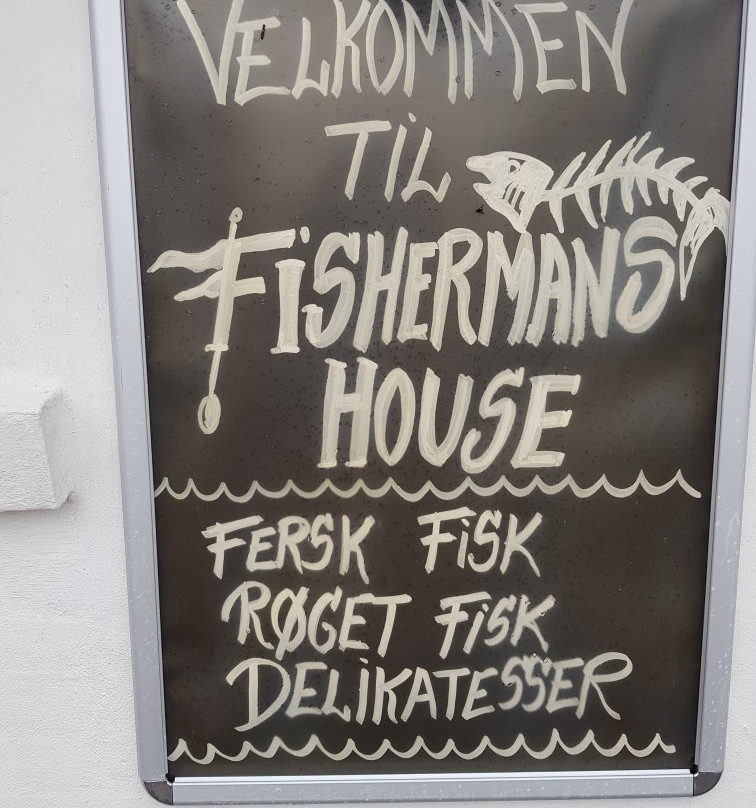 VELKOMMEN
TIL
FISHERMANS
HOUSE
FERSK FISK
RØGET FISK
DELIKATESSER